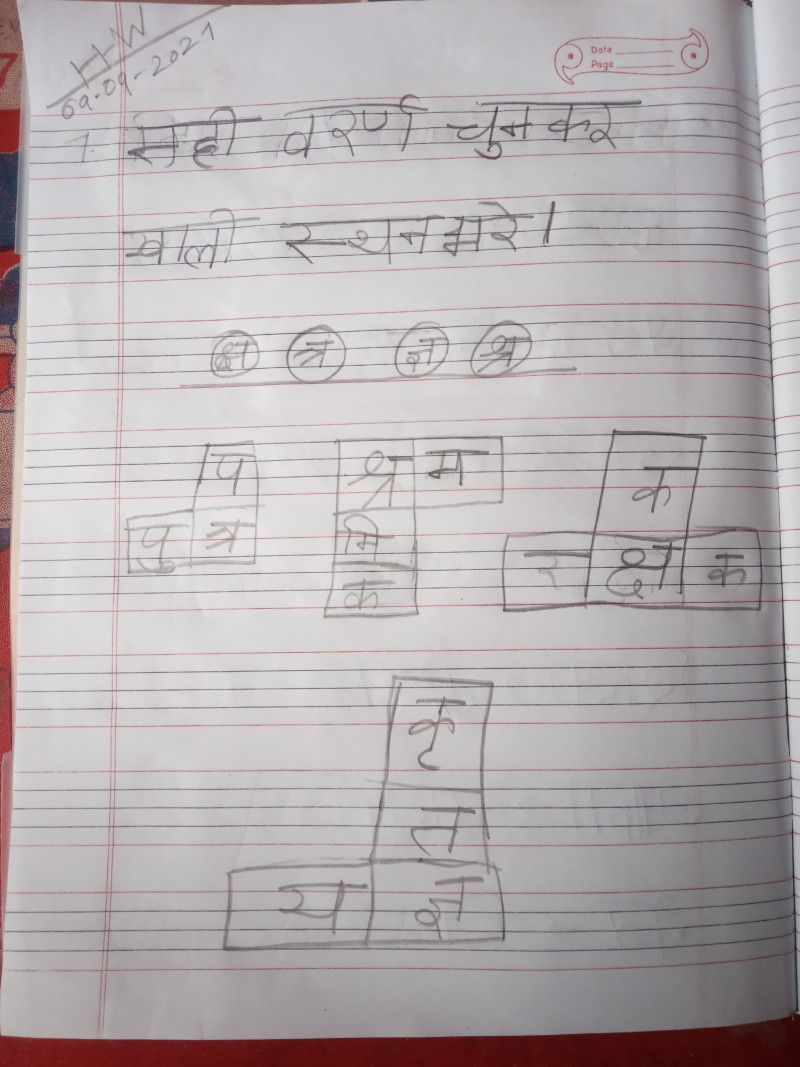 H·W
09-09-2021
Date
Page
1. सही वरर्ण चुन कर
खाली स्थन भरे।
क्ष त्र ज्ञ श्र
प श्र म क
पु त्र मि र क्ष क
क
कृ
त
य ज्ञ